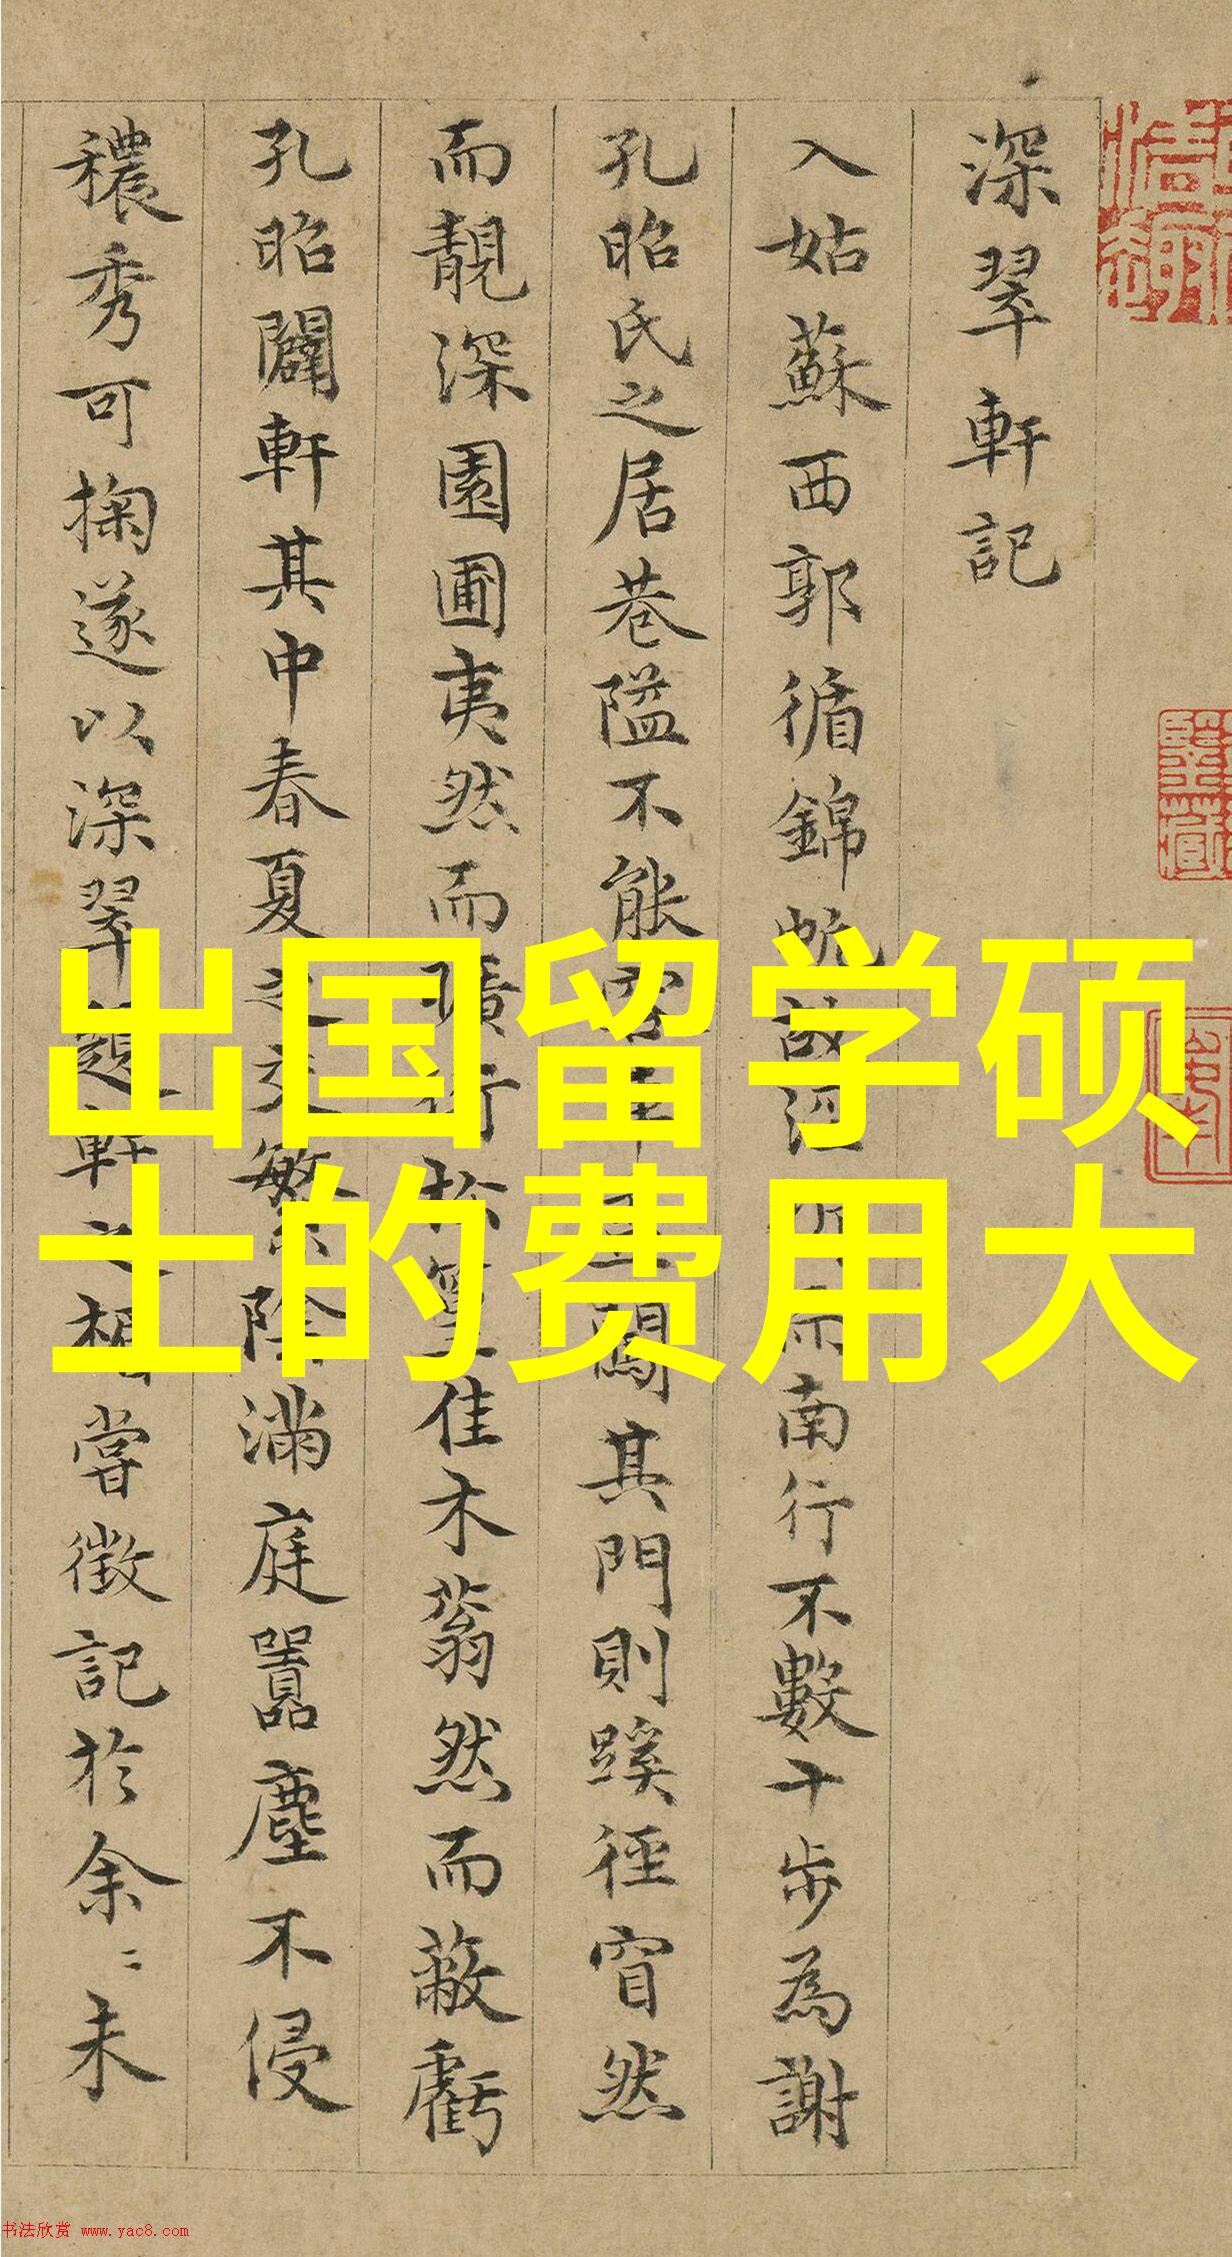 深翠軒記
入姑蘇西郭循錦帆故涇 而南行不數十步為謝
孔昭氏之居巷隘不能容 闖其門則蹊徑窅然
而靚深園圃夷然而曠 松篁佳木蓊然而蔽虧
孔昭闢軒其中春夏之交繁陰滿庭囂塵不侵
穠秀可掬遂以深翠題軒之楣嘗徵記於余〻未
出国留学硕
士的费用大
书法欣赏 www.yac8.com